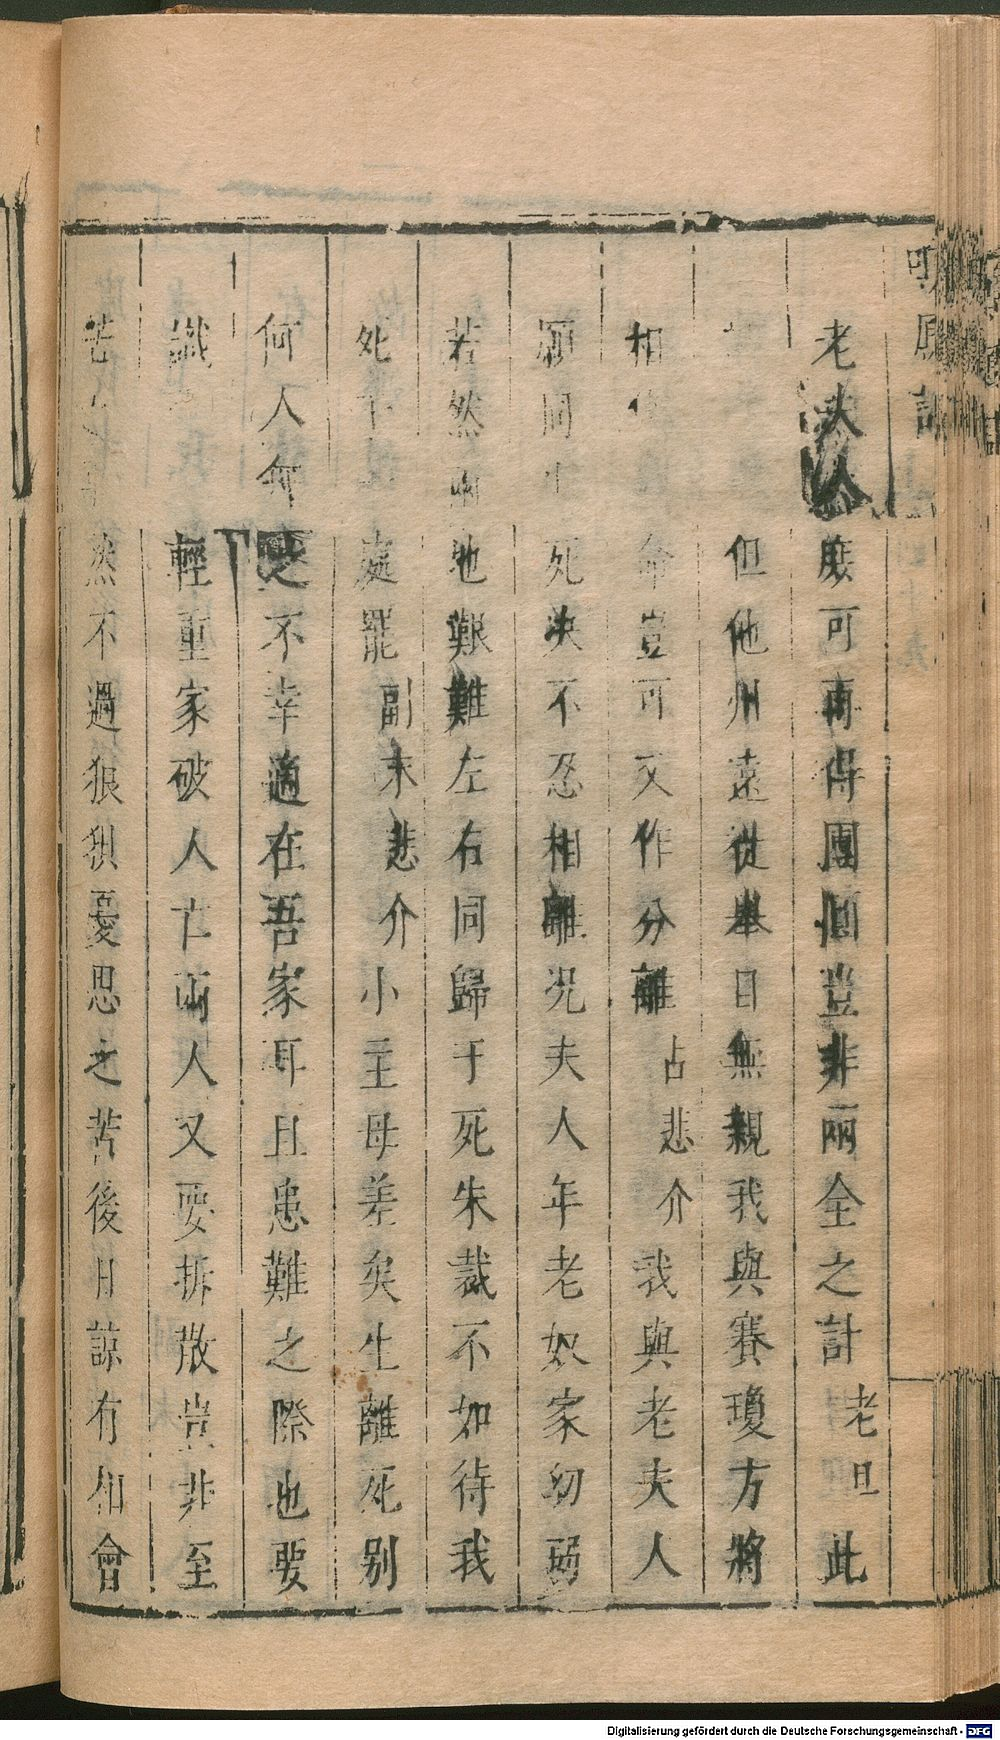 老夫人庶可再得團圓豈非兩全之計老旦此
但他州遠從舉目無親我與賽瓊方將
相 命豈可又作分離占悲介我與老夫人
願同 死決不忍相離況夫人年老奴家幼弱
若然兩地艱難左右同歸于死朱裁不如待我
死 處罷副末悲介小主母差矣生離死别
何人無 不幸適在吾家耳且患難之際也要
識 輕重家破人亡兩人又要拆散豈非至
苦 然不過狼狽憂思之苦後日諒有相會
Digitalisierung gefördert durch die Deutsche Forschungsgemeinschaft - DFG